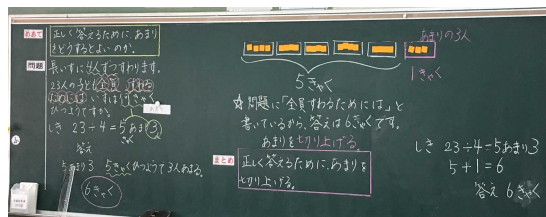 めあて
正しく答えるために、あまり
をどうするとよいのか。
問題
長いすに4人ずつすわります。
23人の子ども全員がすわる
ためには、いすは何きゃく
ひつようですか。
しき 23÷4=5あまり3
きゃく
答え
5あまり3 5きゃくひつようで3人あまる。
6きゃく
あまりの3人
5きゃく
1きゃく
☆問題に「全員すわるためには」と
書いているから、答えは6きゃくです。
あまりを切り上げる。
まとめ
正しく答えるために、あまりを
切り上げる。
しき 23÷4=5あまり3
5+1=6
答え 6きゃく